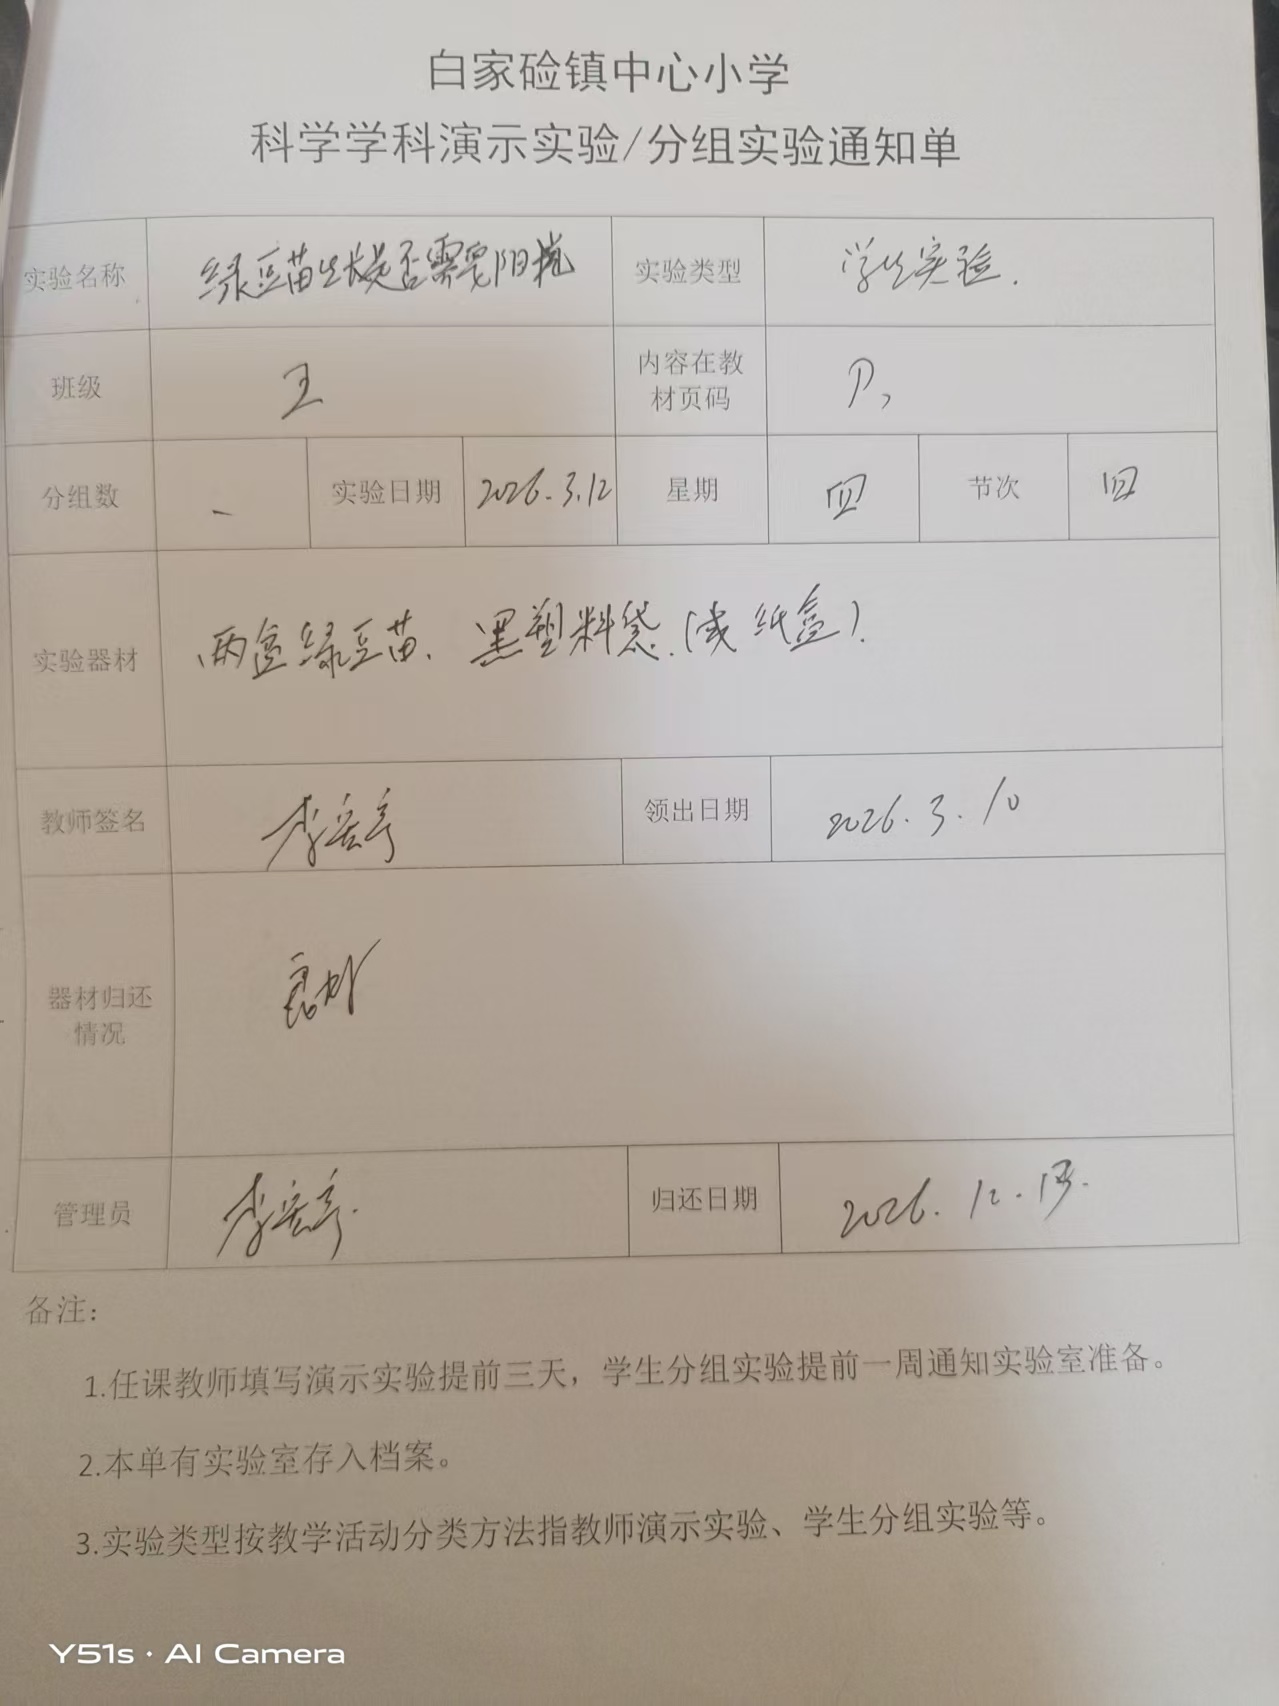 白家硷镇中心小学
科学学科演示实验/分组实验通知单
实验名称 绿豆苗生长是否需要阳光 实验类型 学生实验.
班级 五 内容在教材页码 P7
分组数 一 实验日期 2026.3.12 星期 四 节次 四
实验器材 两盒绿豆苗、黑塑料袋.(或纸盒).
教师签名 李 领出日期 2026.3.10
器材归还情况 良好
管理员 李 归还日期 2026.12.
备注:
1.任课教师填写演示实验提前三天，学生分组实验提前一周通知实验室准备。
2.本单有实验室存入档案。
3.实验类型按教学活动分类方法指教师演示实验、学生分组实验等。
Y51s · AI Camera